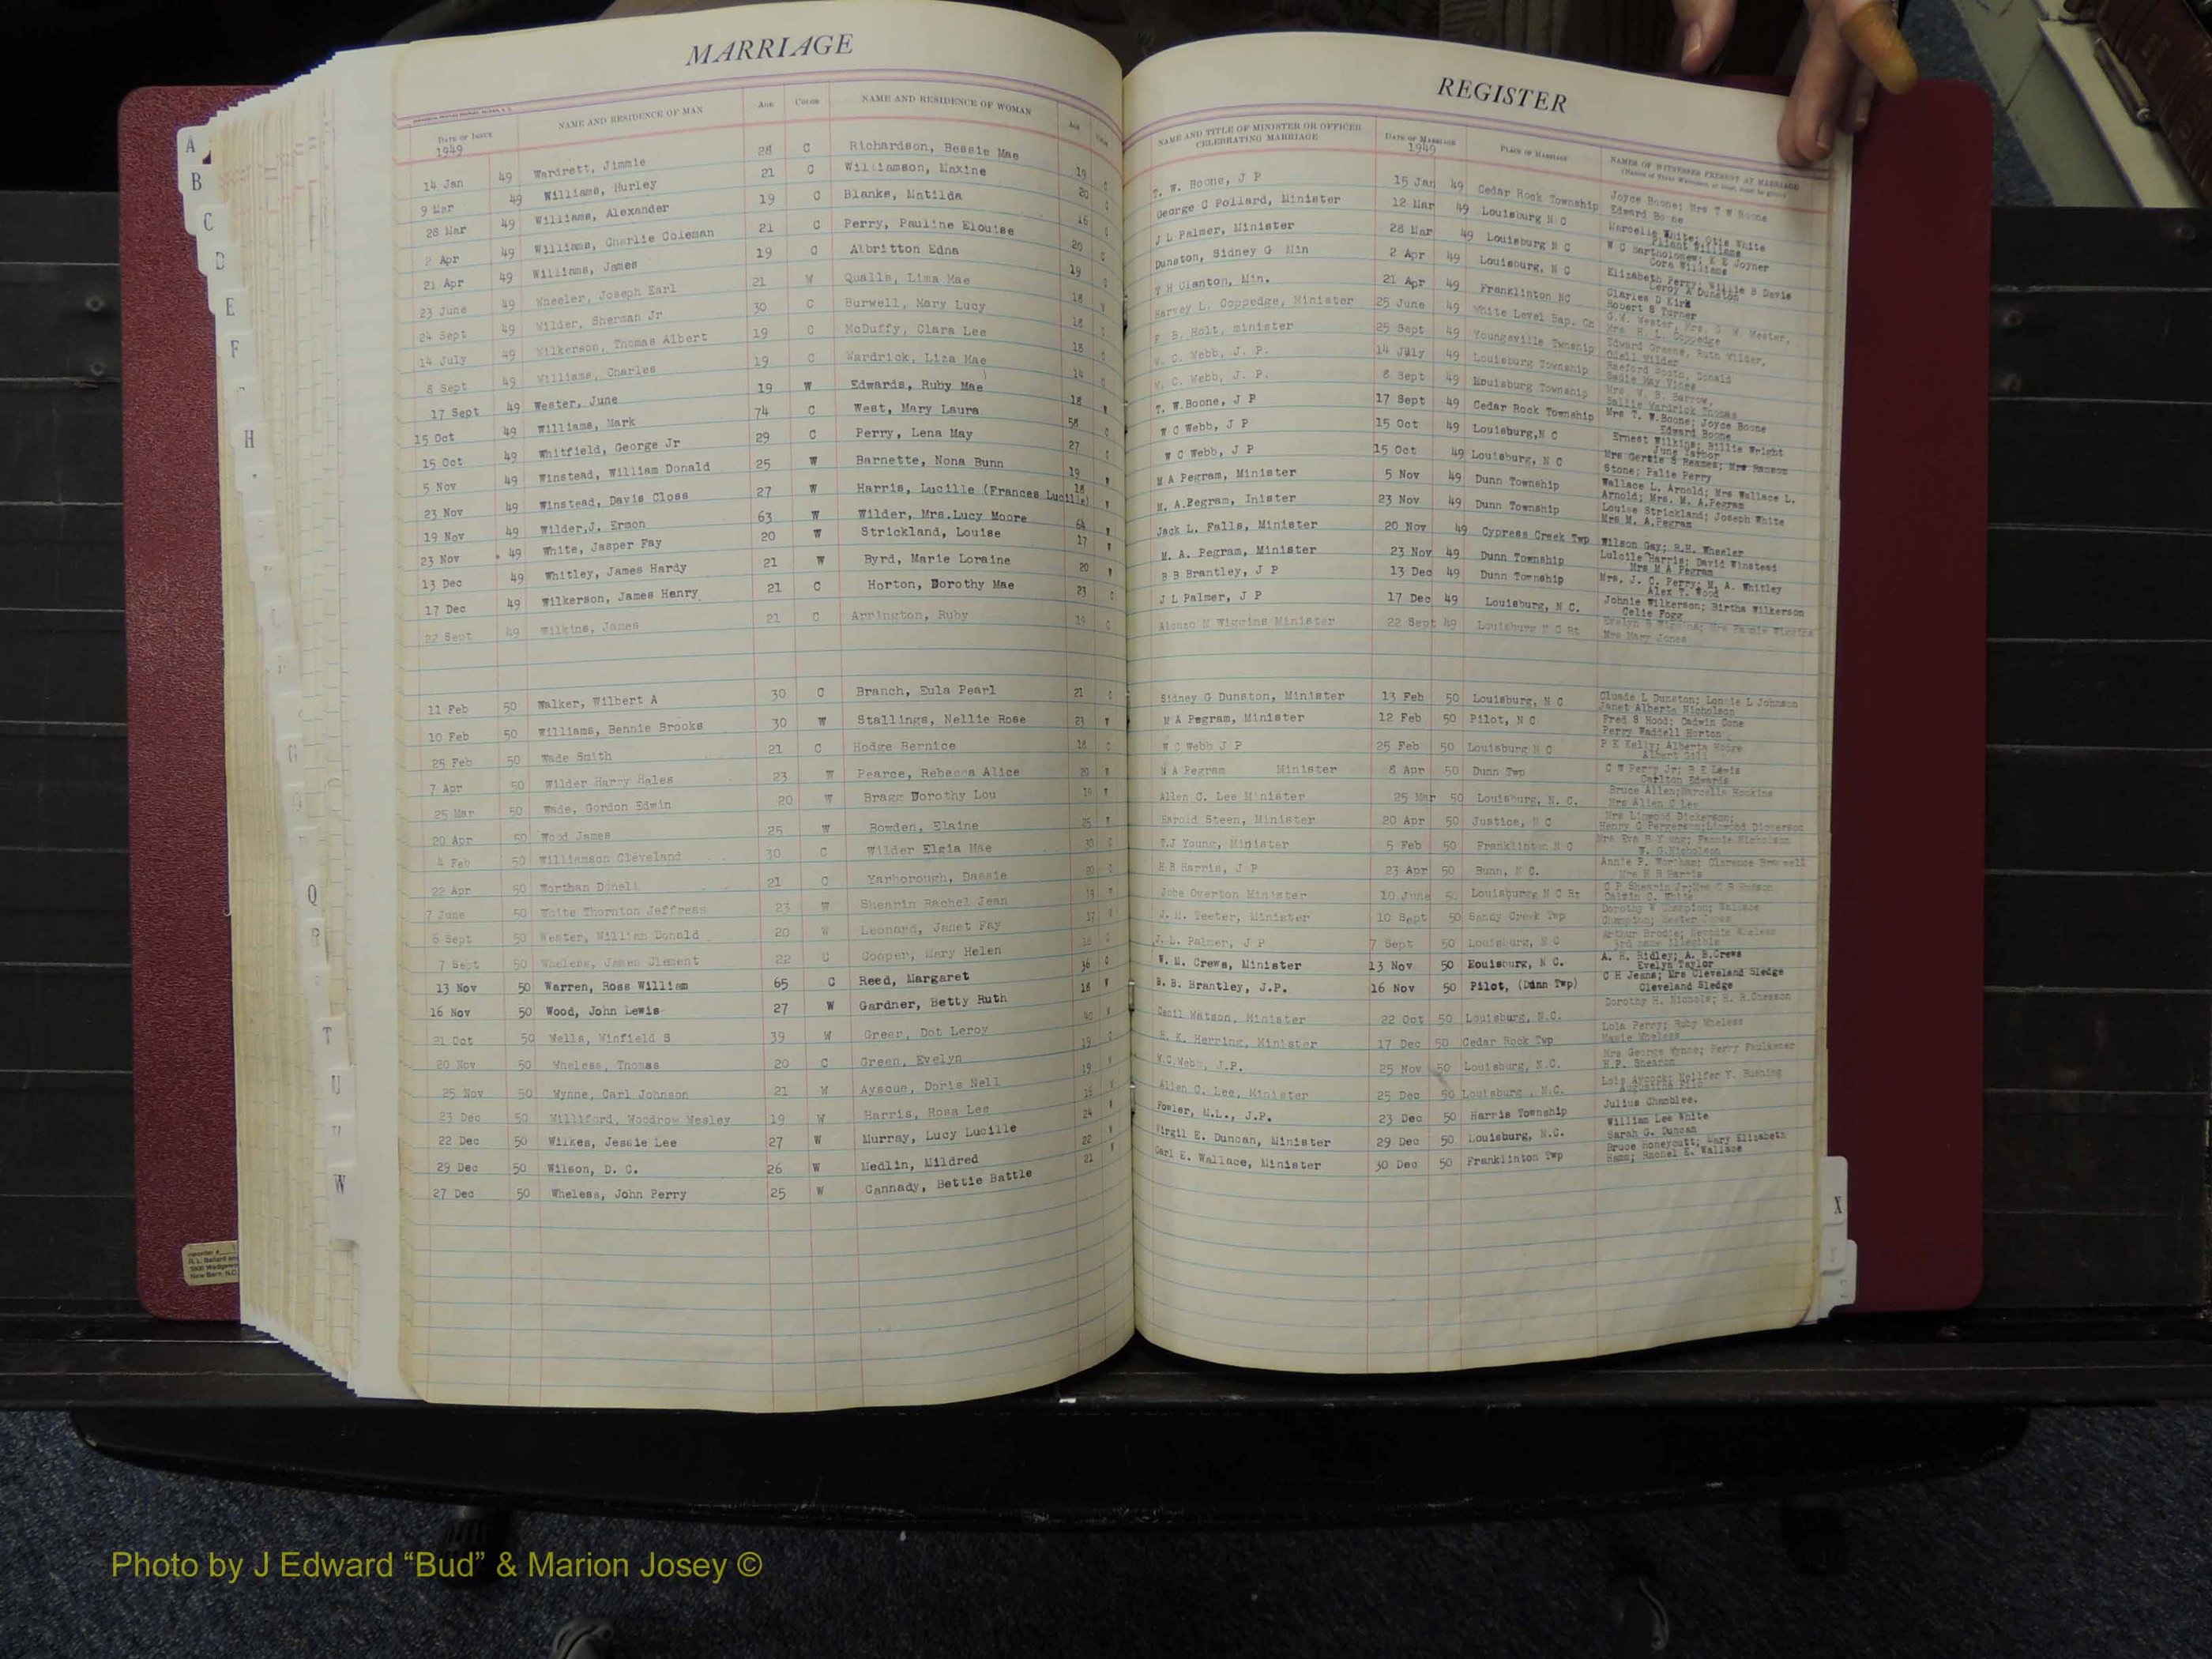 MARRIAGE
DATE OF ISSUE NAME AND RESIDENCE OF MAN AGE COLOR NAME AND RESIDENCE OF WOMAN AGE
1949
14 Jan 49 Wardrett, Jimmie 28 C Richardson, Bessie Mae 19 C
9 Mar 49 Williams, Hurley 21 C Williamson, Maxine 20 C
28 Mar 49 Williams, Alexander 19 C Blanks, Matilda 16 C
2 Apr 49 Williams, Charlie Coleman 21 C Perry, Pauline Elouise 20 C
21 Apr 49 Williams, James 19 C Albritton Edna 19 C
23 June 49 Wheeler, Joseph Earl 21 W Qualls, Lima Mae 18 W
24 Sept 49 Wilder, Sherman Jr 30 C Burwell, Mary Lucy 18 C
14 July 49 Wilkerson, Thomas Albert 19 C McDuffy, Clara Lee 18 C
8 Sept 49 Williams, Charles 19 C Wardrick, Liza Mae 14 C
17 Sept 49 Wester, June 19 W Edwards, Ruby Mae 18 W
15 Oct 49 Williams, Mark 74 C West, Mary Laura 58 C
15 Oct 49 Whitfield, George Jr 29 C Perry, Lena May 27 C
5 Nov 49 Winstead, William Donald 25 W Barnette, Nona Bunn 19 W
23 Nov 49 Winstead, Davis Closs 27 W Harris, Lucille (Frances Lucille) 18 W
19 Nov 49 Wilder,J. Ermon 63 W Wilder, Mrs.Lucy Moore 64 W
23 Nov 49 White, Jasper Fay 20 W Strickland, Louise 17 W
13 Dec 49 Whitley, James Hardy 21 W Byrd, Marie Loraine 20 W
17 Dec 49 Wilkerson, James Henry 21 C Horton, Dorothy Mae 23 C
22 Sept 49 Wilkins, James 21 C Arrington, Ruby 19 C
11 Feb 50 Walker, Wilbert A 30 C Branch, Eula Pearl 21 C
10 Feb 50 Williams, Bennie Brooks 30 W Stallings, Nellie Rose 23 W
25 Feb 50 Wade Smith 21 C Hodge Bernice 18 C
7 Apr 50 Wilder Harry Hales 23 W Pearce, Rebecca Alice 20 W
25 Mar 50 Wade, Gordon Edwin 20 W Bragg Dorothy Lou 19 W
20 Apr 50 Wood James 25 W Bowden, Elaine 25 W
4 Feb 50 Williamson Cleveland 30 C Wilder Elgia Mae 30 C
22 Apr 50 Worthan Donell 21 C Yarborough, Dassie 20 C
7 June 50 White Thornton Jeffress 23 W Shearin Rachel Jean 19 W
6 Sept 50 Wester, William Donald 20 W Leonard, Janet Fay 17 W
7 Sept 50 Wheless, James Clement 22 C Cooper, Mary Helen 18 C
13 Nov 50 Warren, Ross William 65 C Reed, Margaret 36 C
16 Nov 50 Wood, John Lewis 27 W Gardner, Betty Ruth 18 W
21 Oct 50 Wells, Winfield S 39 W Greer, Dot Leroy 40 W
20 Nov 50 Wheless, Thomas 20 C Green, Evelyn 19 C
25 Nov 50 Wynne, Carl Johnson 21 W Ayscue, Doris Nell 19 W
23 Dec 50 Williford, Woodrow Wesley 19 W Harris, Rosa Lee 16 W
22 Dec 50 Wilkes, Jessie Lee 27 W Murray, Lucy Lucille 24 W
29 Dec 50 Wilson, D. C. 26 W Medlin, Mildred 22 W
27 Dec 50 Wheless, John Perry 25 W Cannady, Bettie Battle 21
REGISTER
NAME AND TITLE OF MINISTER OR OFFICER CELEBRATING MARRIAGE DATE OF MARRIAGE PLACE OF MARRIAGE NAMES OF WITNESSES PRESENT AT MARRIAGE
1949
T. W. Boone, J P 15 Jan 49 Cedar Rock Township Joyce Boone; Mrs T W Boone
Edward Boone
George C Pollard, Minister 12 Mar 49 Louisburg N C Marcelle White; Otis White
Pliant Williams
J L Palmer, Minister 28 Mar 49 Louisburg N C W C Bartholomew; K E Joyner
Cora Williams
Dunston, Sidney G Min 2 Apr 49 Louisburg, N C Elizabeth Perry; Willie B Davis
Leroy A Dunston
T H Clanton, Min. 21 Apr 49 Franklinton NC Clarles D Kirk
Robert S Turner
Harvey L. Coppedge, Minister 25 June 49 White Level Bap. Ch G.W. Wester, Mrs. G. W. Wester,
Mrs. H. L. Coppedge
F B. Holt, minister 25 Sept 49 Youngsville Twnship Edward Greene, Ruth Wilder,
Odell Wilder
W. C. Webb, J. P. 14 July 49 Louisburg Township Raeford Booth, Donald
Sadie May Vines
W. C. Webb, J. P. 8 Sept 49 Kouisburg Township Mrs. W. B. Barrow,
Sallie Wardrick Thomas
T. W.Boone, J P 17 Sept 49 Cedar Rock Township Mrs T. W.Boone; Joyce Boone
Edward Boone
W C Webb, J P 15 Oct 49 Louisburg,N C Ernest Wilkins; Billie Wright
June Yarbor
W C Webb, J P 15 Oct 49 Louisburg, N C Mrs Gertie S Reames; Mrs Ransom
Stone; Palie Perry
M A Pegram, Minister 5 Nov 49 Dunn Township Wallace L. Arnold; Mrs Wallace L.
Arnold; Mrs. M. A.Pegram
M. A.Pegram, Inister 23 Nov 49 Dunn Township Louise Strickland; Joseph White
Mrs M. A.Pegram
Jack L. Falls, Minister 20 Nov 49 Cypress Creek Twp Wilson Gay; R.H. Wheeler
M. A. Pegram, Minister 23 Nov 49 Dunn Township Lulcile Harris; David Winstead
Mrs M A Pegram
B B Brantley, J P 13 Dec 49 Dunn Township Mrs. J. C. Perry; M. A. Whitley
Alex T. Wood
J L Palmer, J P 17 Dec 49 Louisburg, N C. Johnie Wilkerson; Birtha Wilkerson
Celie Fogg
Alonzo M Wiggins Minister 22 Sept 49 Louisburg N C Rt Evelyn B Wiggins; Mrs Fannie Wiggins
Mrs Mary Jones
Sidney G Dunston, Minister 13 Feb 50 Louisburg, N C Cluade L Dunston; Lonnie L Johnson
Janet Alberta Nicholson
M A Pegram, Minister 12 Feb 50 Pilot, N C Fred S Hood; Cadwin Cone
Perry Waddell Horton
W C Webb J P 25 Feb 50 Louisburg N C P K Kelly; Alberta Hodge
Albert Gill
M A Pegram Minister 8 Apr 50 Dunn Twp C W Perry Jr; B E Lewis
Carlton Edwards
Allen C. Lee Minister 25 Mar 50 Louisburg, N. C. Bruce Allen;Marcella Hoskins
Mrs Allen C Lee
Harold Steen, Minister 20 Apr 50 Justice, N C Mrs Linwood Dickerson;
Henry C Pergerson;Linwood Dickerson
T.J Young, Minister 5 Feb 50 Franklinton N C Mrs Eva B Young; Fannie Nicholson
W. G.Nicholson
H B Harris, J P 23 Apr 50 Bunn, N C. Annie P. Wortham; Clarence
Mrs H B Harris
John Overton Minister 10 June 50 Louisburg, N C Rt C P Shearin Jr;Mrs C R Hudson
Calvin C. White
J. M. Teeter, Minister 10 Sept 50 Sandy Creek Twp Dorothy W Champion; Wallace
Champion; Hester Jones
J. L. Palmer, J P 7 Sept 50 Louisburg, N C Arthur Brodie; Wheless
3rd name illegible
W. M. Crews, Minister 13 Nov 50 Eouisburg, N C. A. H. Ridley; A. B.Crews
Evelyn Taylor
B. B. Brantley, J.P. 16 Nov 50 Pilot, (Dunn Twp) C H Jeans; Mrs Cleveland Sledge
Cleveland Sledge
Cecil Watson, Minister 22 Oct 50 Louisburg, N.C. Dorothy H. Nichols; H. R.Chesson
H. K. Herring, Minister 17 Dec 50 Cedar Rock Twp Lola Perry; Ruby Wheless
Mamie Wheless
W.C.Webb, J.P. 25 Nov 50 Louisburg, N.C. Mrs George Wynne; Perry Faulkener
H.P. Shearon
Allen C. Lee, Minister 25 Dec 50 Louisburg, N.C. Lois Aycock; Y. Rushing
Fowler, M.L., J.P. 23 Dec 50 Harris Township Julius Chamblee.
William Lee White
Virgil E. Duncan, Minister 29 Dec 50 Louisburg, N.C. Sarah G. Duncan
Carl E. Wallace, Minister 30 Dec 50 Franklinton Twp Bruce Honeycutt; Mary Elizabeth
Hamm; Rachel E. Wallace
A
B
C
D
E
F
H
Q
R
T
U
W
X
Photo by J Edward “Bud” & Marion Josey ©